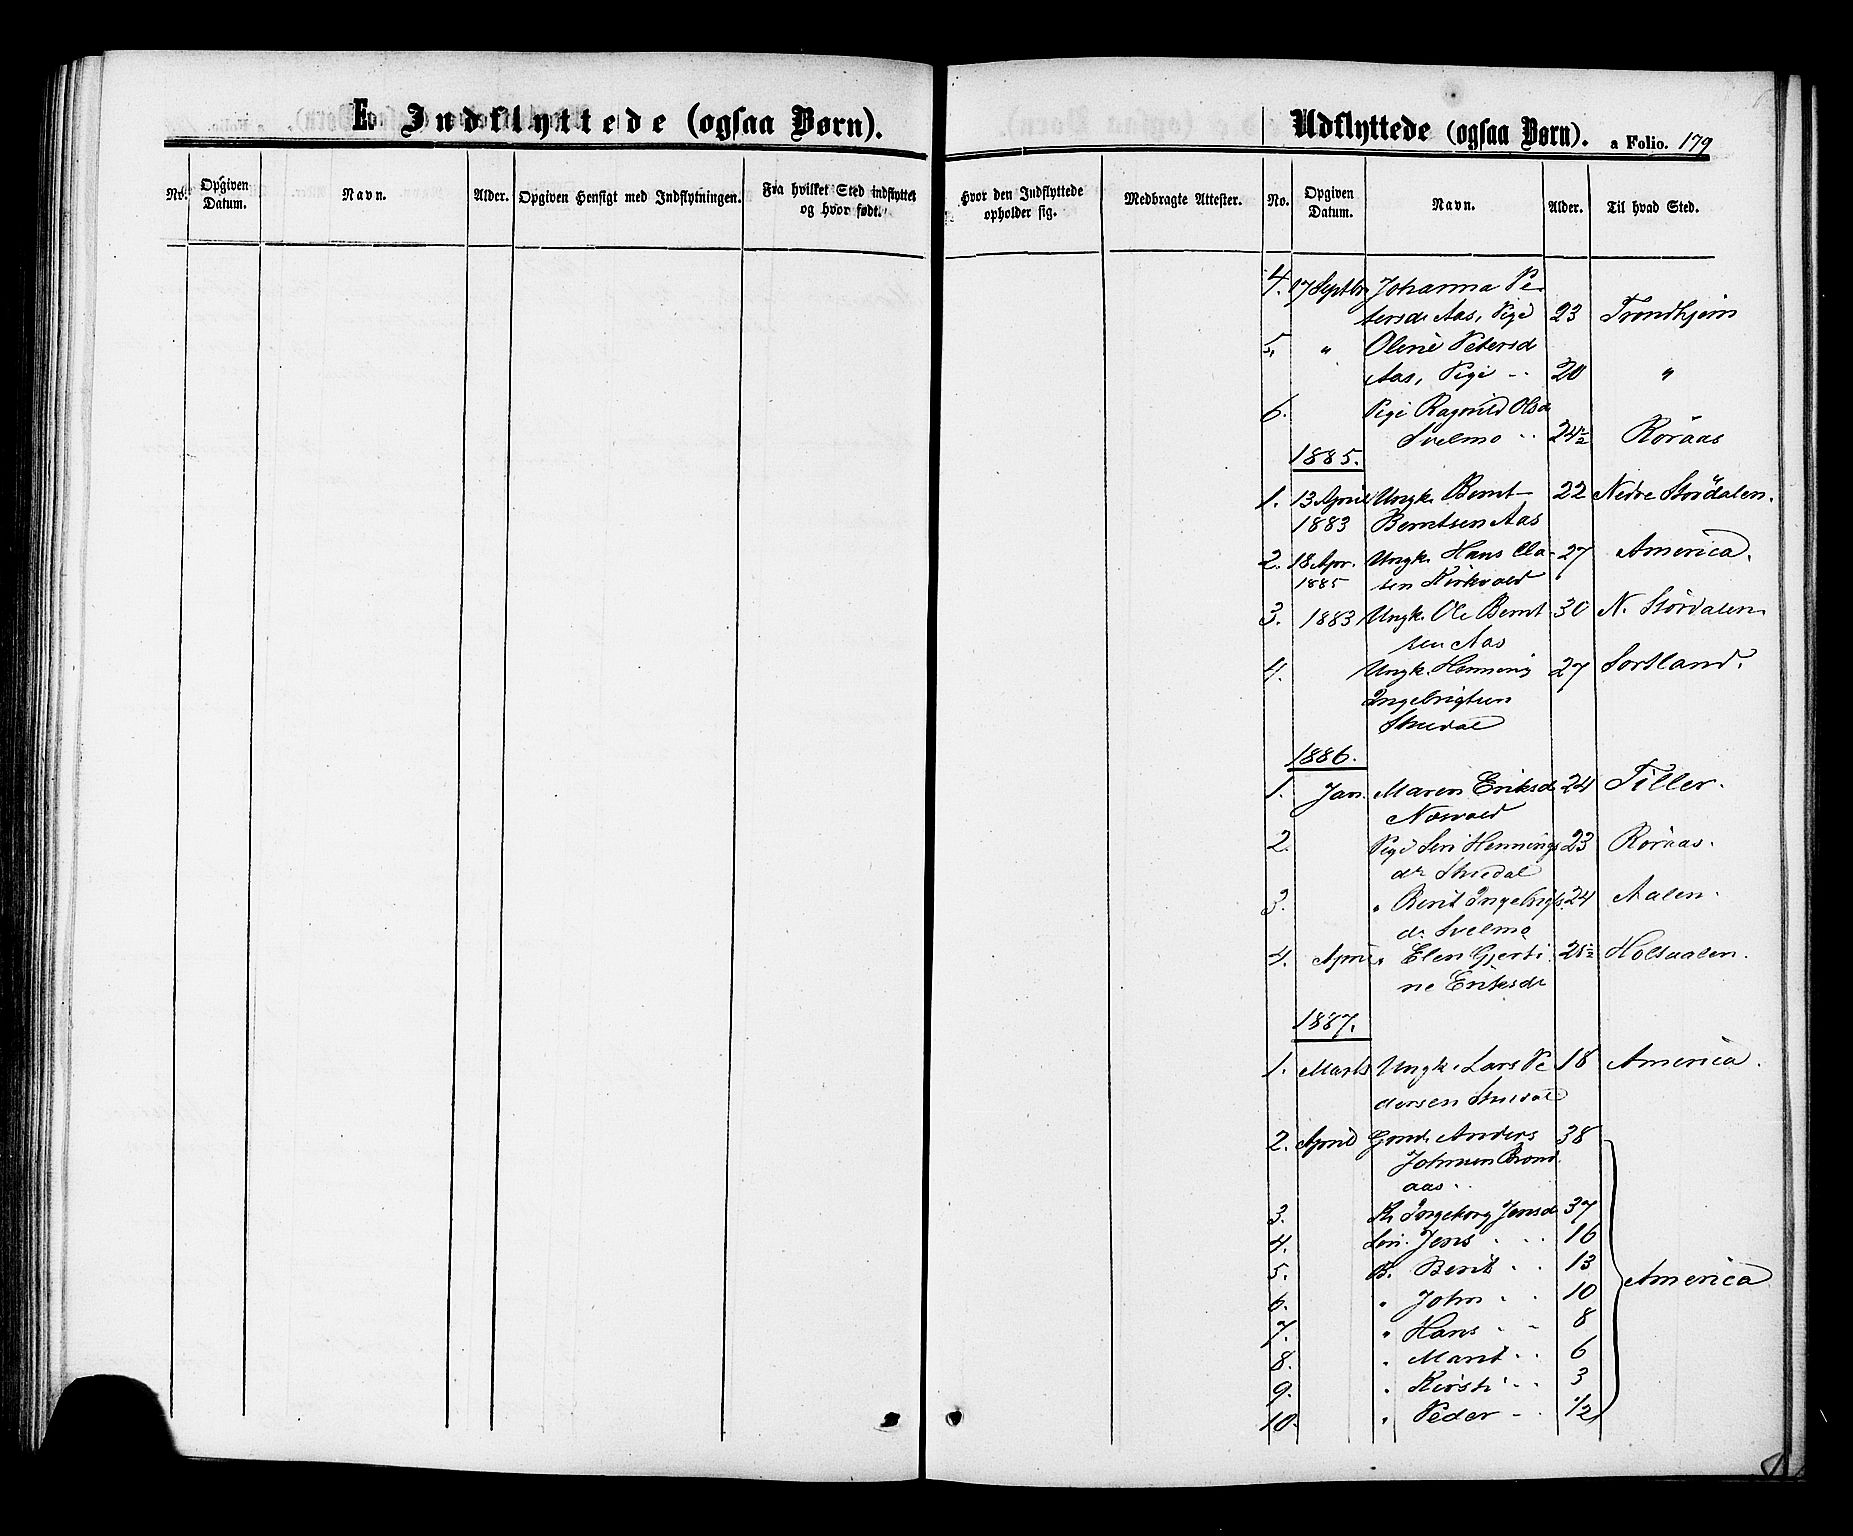 E. Indflyttede (ogsaa Børn).
No. Opgiven Datum. Navn. Alder. Opgiven Hensigt med Indflytningen. Fra hvilket Sted indflyttet og hvor født.
Hvor den Indflyttede opholder sig. Medbragte Attester.
Udflyttede (ogsaa Børn). a Folio. 179
No. Opgiven Datum. Navn. Alder. Til hvad Sted.
4. 17 Septbr Johanna Pe-
tersdr Aas, Pige 23 Trondhjem
5. " Oline Petersd
Aas, Pige - 20 "
6. Pige Ragnild Olsd
Svelmo - 24½ Røraas
1885.
1. 13 April Ungk. Bernt 22 Nedre Stordalen.
1883 Berntsen Aas
2. 18 Apr. Ungk. Hans Cla- 27 America.
1885 sen Kirkvold
3. 1883 Ungk. Ole Bernt 30 N. Størdalen
sen Aas
4. Ungk. Henning 27 Sortland.
Ingebrigtsen
Stuedal
1886.
1. Jan. Maren Eriksd 24 Tiller.
Næsvold
2. Pige Siri Hennings 23 Røraas.
dr Stuedal
3. " Berit Ingebrigts. 24 Aalen.
dr Svelmo
4. April " Elen Gjerti 25½ Holtaalen.
ne Eriksdr
1887.
1. Marts Ungk. Lars Pe 18 America.
dersen Stuedal
2. April Gmd. Anders 38
Johnsen Brynd
aas.
3. K. Ingeborg Jensd 37
4. Søn. Jens 16
5. B. Berit 13
America
6. " John 10
7. " Hans 8
8. " Marit 6
9. " Kirsti 3
10. " Peder 1/2